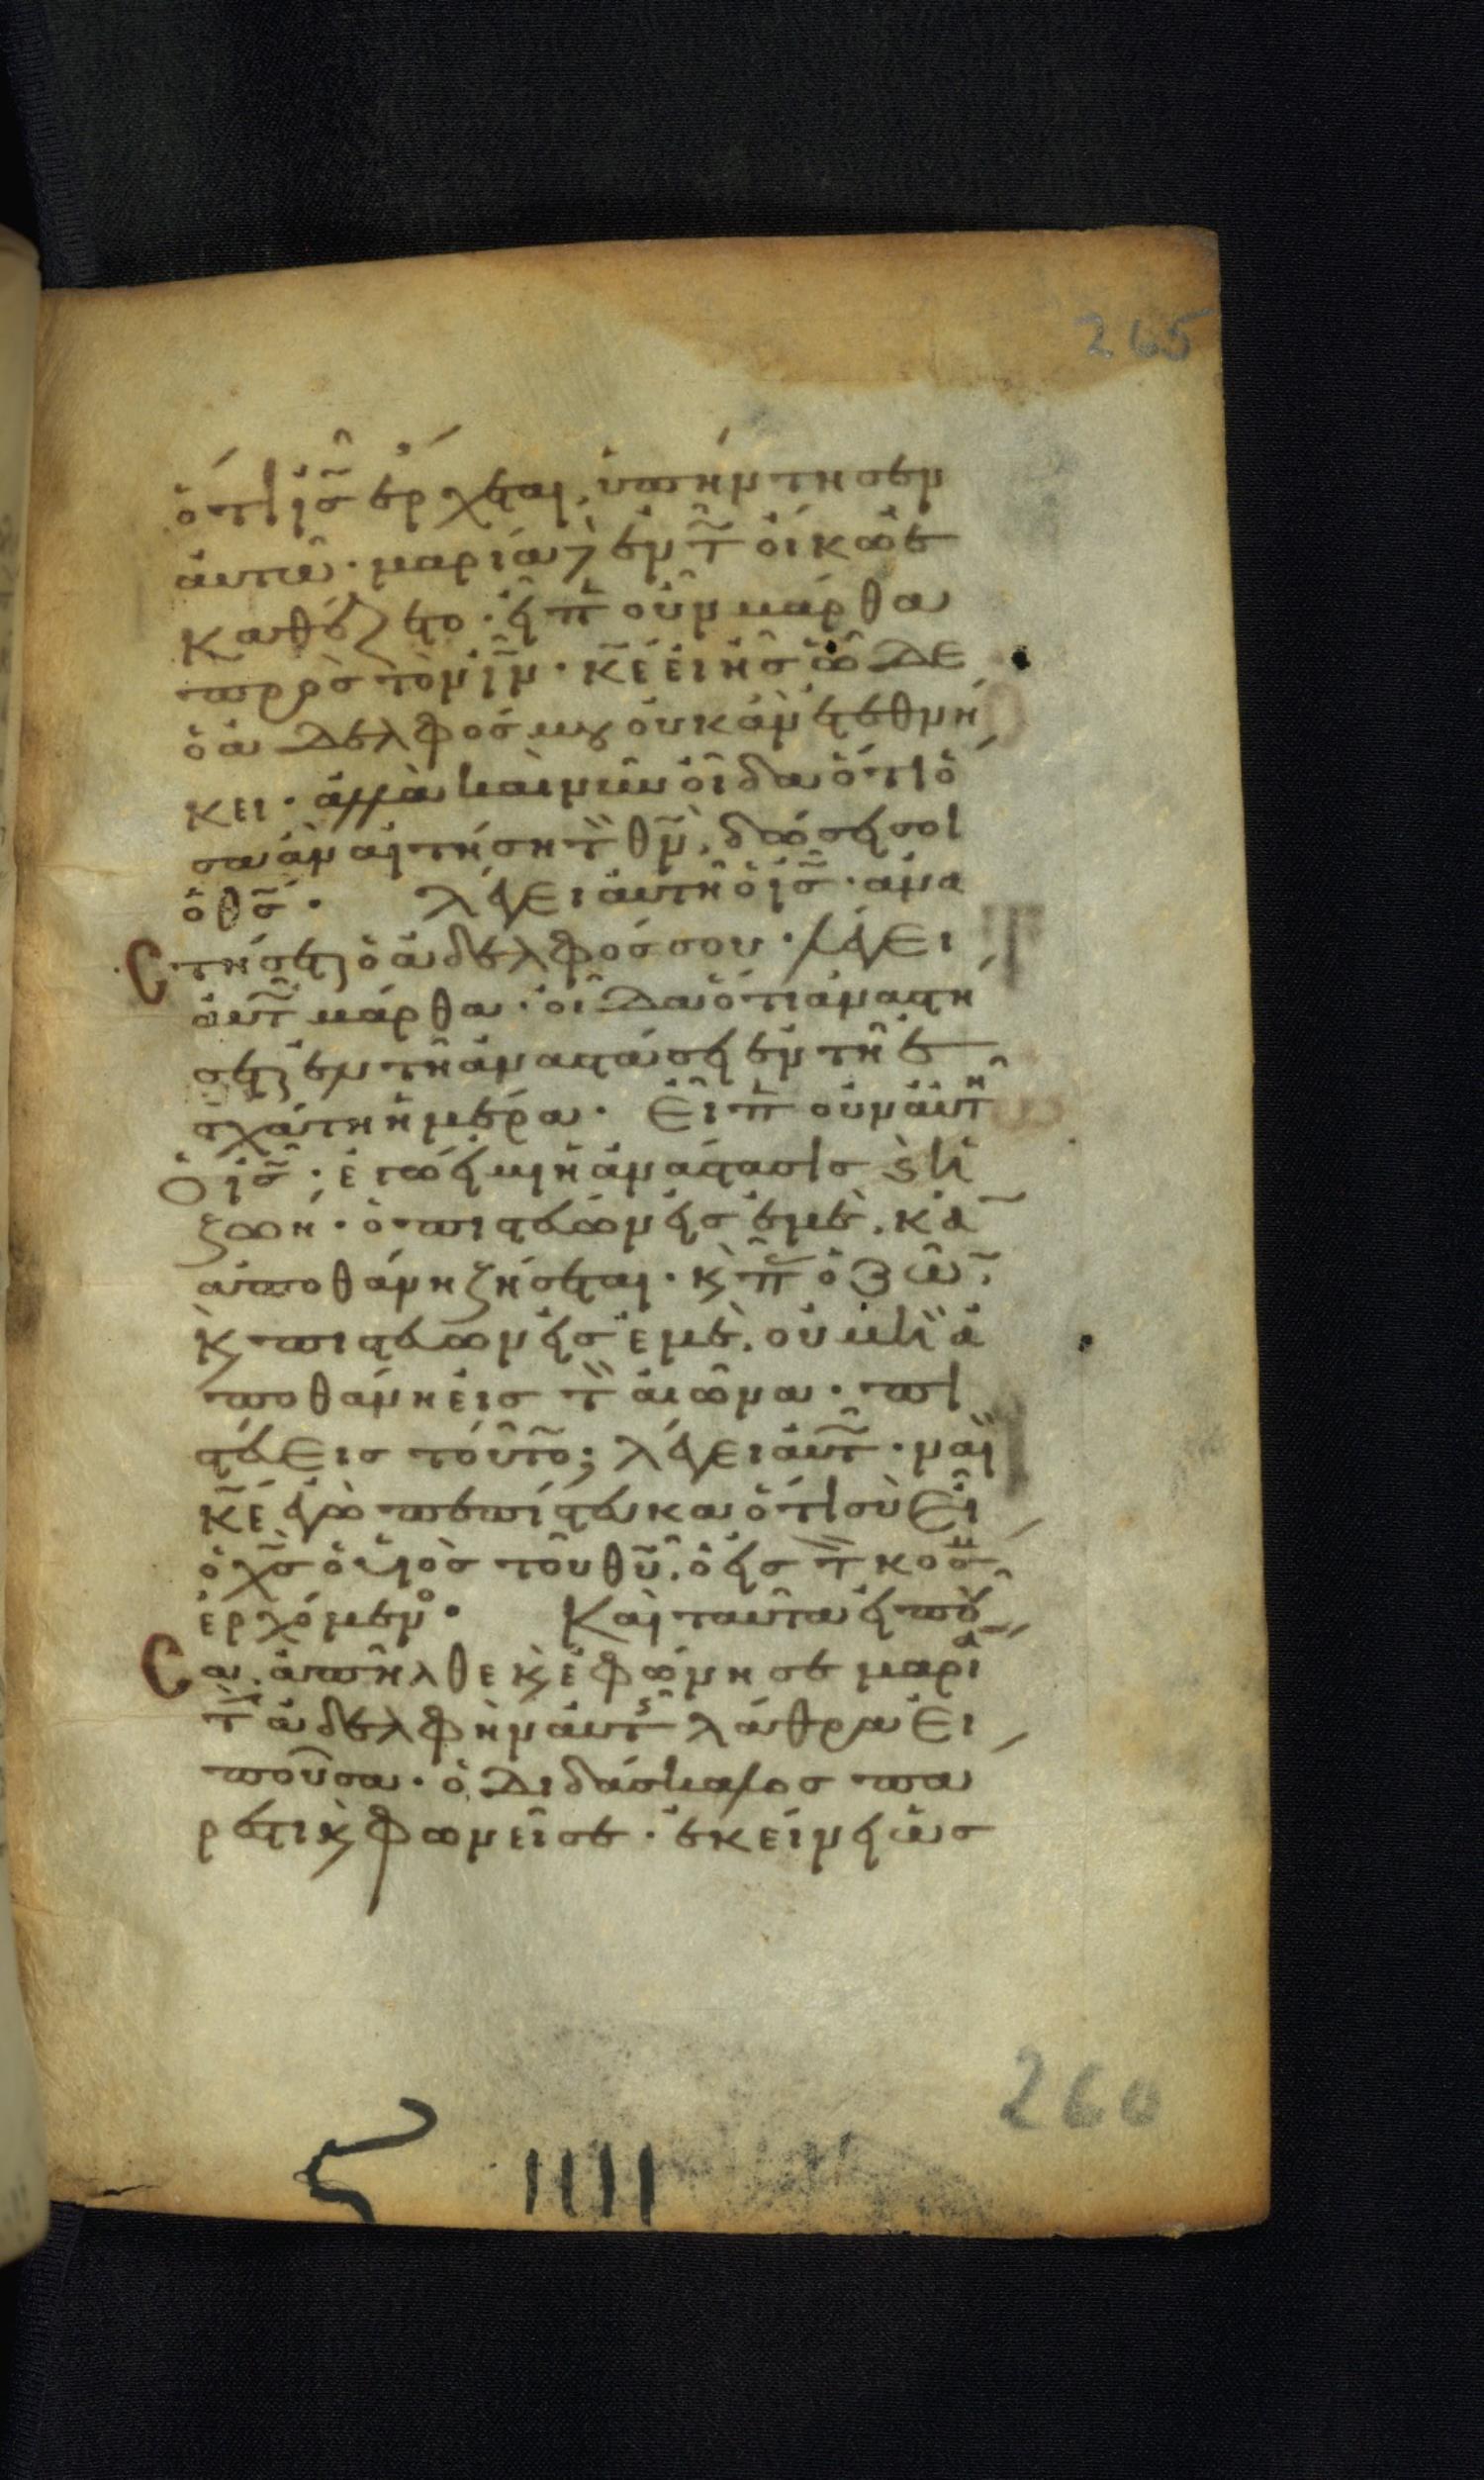 265
ὅτι ἰς̃ ἔρχεται, ὑπήντησεν
ἀυτῶ · μαρία δὲ ἐν τ͂ ὀίκω ἐ
καθέζετο · εἶπ̃ οὖν μάρθα
πρὸς τὸν ἰν̃ · κ̃ε ἐι ἦς ὧδε
ὁ ἀδελφός μου ὀυκ ἂν ἐτεθνή
κει · ἀλλὰ καὶ νῦν οἶδα ὅτι ὅ
σα ἂν αἰτήση τ̀ θν̃, δώσει σοι
ὁ θς̃ · λέγει ἀυτῆ ὁ ις̃ · ἀνα
στήσεται ὁ ἀδελφός σου · λέγει
ἀυτ͂ μάρθα · οἶδα ὅτι ἀναστή
σεται ἐν τῆ ἀναστάσει ἐν τῆ ἐ
σχάτη ἡμέρα · Εἶπ̃ οὖν ἀυτῆ
ὁ ις̃ · ἐγώ εἰμι ἡ ἀνάστασις κ̀ ἡ
ζωή · ὁ πιστεύων εἰς ἐμὲ, κἂ
ἀποθάνη ζήσεται · κ̀ π̃ ὁ ζῶ̃
κ̀ πιστεύων εἰς ἐμὲ, οὐ μὴ ἀ
ποθάνη ἐις τ̀ ἀιῶνα · πι
στέυεις τοῦτο; λέγει ἀυτ͂ · ναὶ
κ̃ε ἐγὼ πεπίστευκα ὅτι σὺ εἶ
ὁ χς̃ ὁ υἱὸς τοῦ θυ̃, ὁ εἰς τ̀ κοσμ̃
ἐρχόμεν° · Καὶ ταῦτα εἰποῦ
σα, ἀπῆλθε κ̀ ἐφώνησε μαρία̃
τ̀ ἀδελφὴν ἀυτ͂ λάθρα ἐι
ποῦσα · ὁ διδάσκαλος πα
ρεστι κ̀ φωνεῖ σε · ἐκείνη ὡς
260